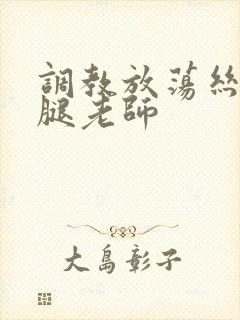 調教放蕩絲
腿老師
大島彰子